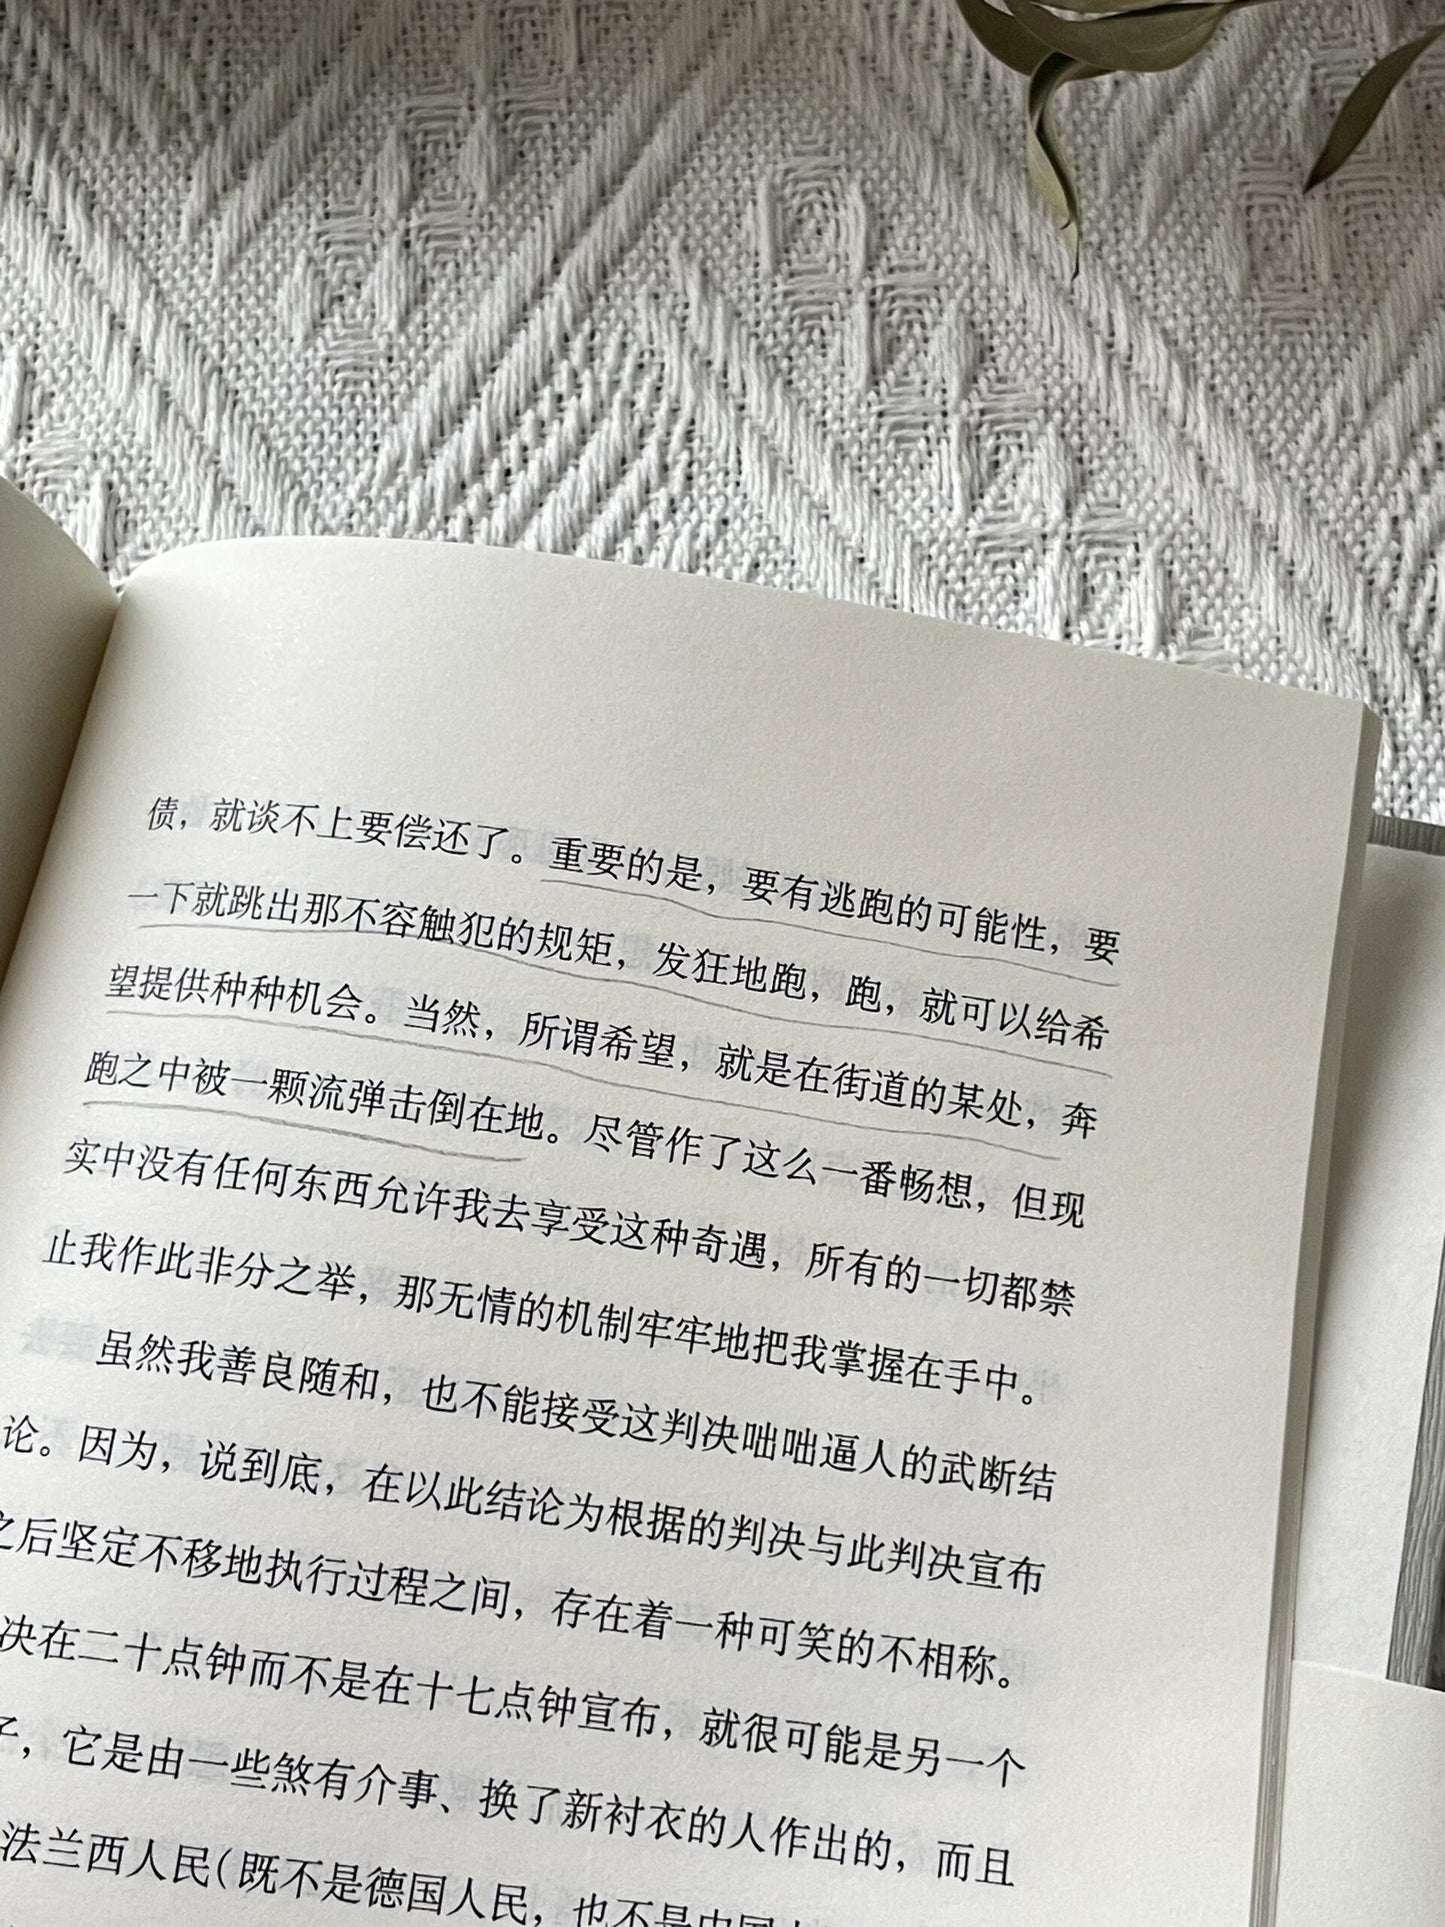 债，就谈不上要偿还了。重要的是，要有逃跑的可能性，要
一下就跳出那不容触犯的规矩，发狂地跑，跑，就可以给希
望提供种种机会。当然，所谓希望，就是在街道的某处，奔
跑之中被一颗流弹击倒在地。尽管作了这么一番畅想，但现
实中没有任何东西允许我去享受这种奇遇，所有的一切都禁
止我作此非分之举，那无情的机制牢牢地把我掌握在手中。
虽然我善良随和，也不能接受这判决咄咄逼人的武断结
论。因为，说到底，在以此结论为根据的判决与此判决宣布
之后坚定不移地执行过程之间，存在着一种可笑的不相称。
决在二十点钟而不是在十七点钟宣布，就很可能是另一个
子，它是由一些煞有介事、换了新衬衣的人作出的，而且
法兰西人民(既不是德国人民，也不是中国